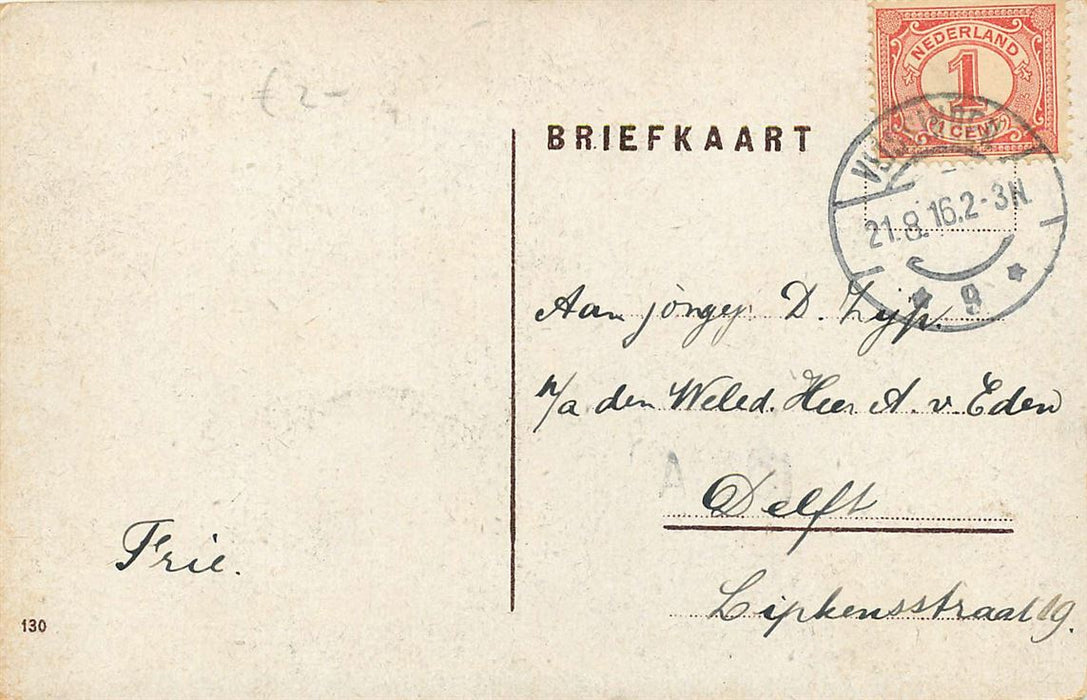 € 2-
BRIEFKAART
NEDERLAND
1
1 CENT
21.8.16.2-3N.
9
Aan jongej. D. Zijp.
p/a den Weled. Heer A. v. Eden
Delft
Lipkensstraat 19.
Frie.
130